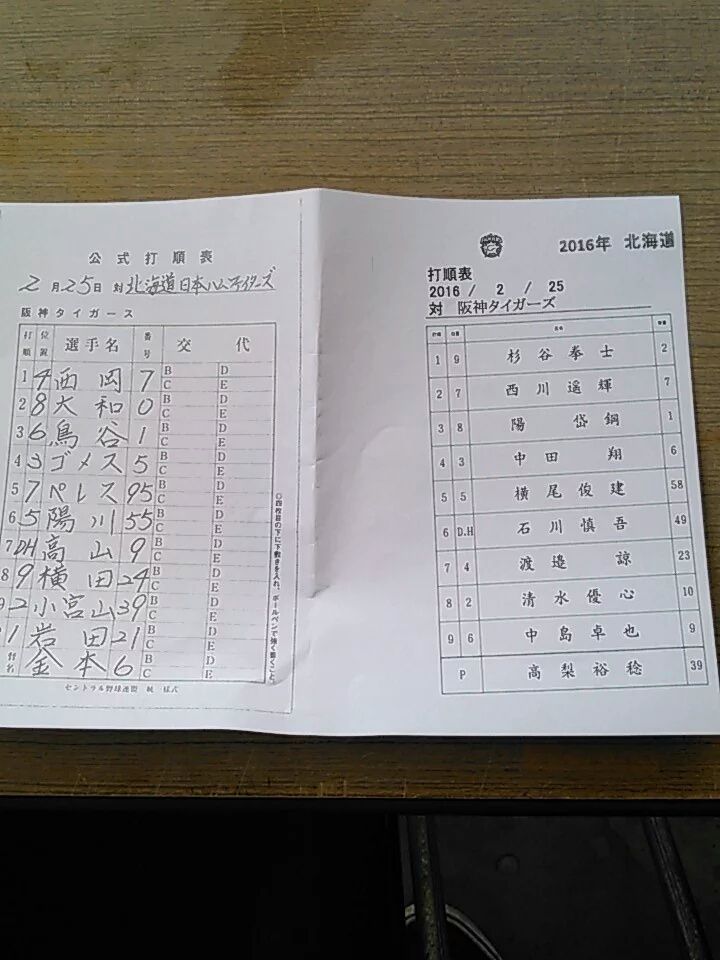 公式打順表
2月25日 対 北海道日本ハムファイターズ
阪神タイガース
打順 位置 選手名 番号 交代
1 4 西岡 7 B C D E
2 8 大和 0 B C D E
3 6 鳥谷 1 B C D E
4 3 ゴメス 5 B C D E
5 7 ペレス 95 B C D E
6 5 陽川 55 B C D E
7 DH 高山 9 B C D E
8 9 横田 24 B C D E
9 2 小宮山 39 B C D E
1 岩田 21 B C D E
金本 6 B C D E
◎四枚目の下に下敷きを入れ、ボールペンで強く書くこと。
セントラル野球連盟 様式
2016年 北海道
打順表
2016 / 2 / 25
対 阪神タイガース
打順 位置 氏名 背番
1 9 杉谷拳士 2
2 7 西川遥輝 7
3 8 陽岱鋼 1
4 3 中田翔 6
5 5 横尾俊建 58
6 D.H 石川慎吾 49
7 4 渡邉諒 23
8 2 清水優心 10
9 6 中島卓也 9
P 高梨裕稔 39